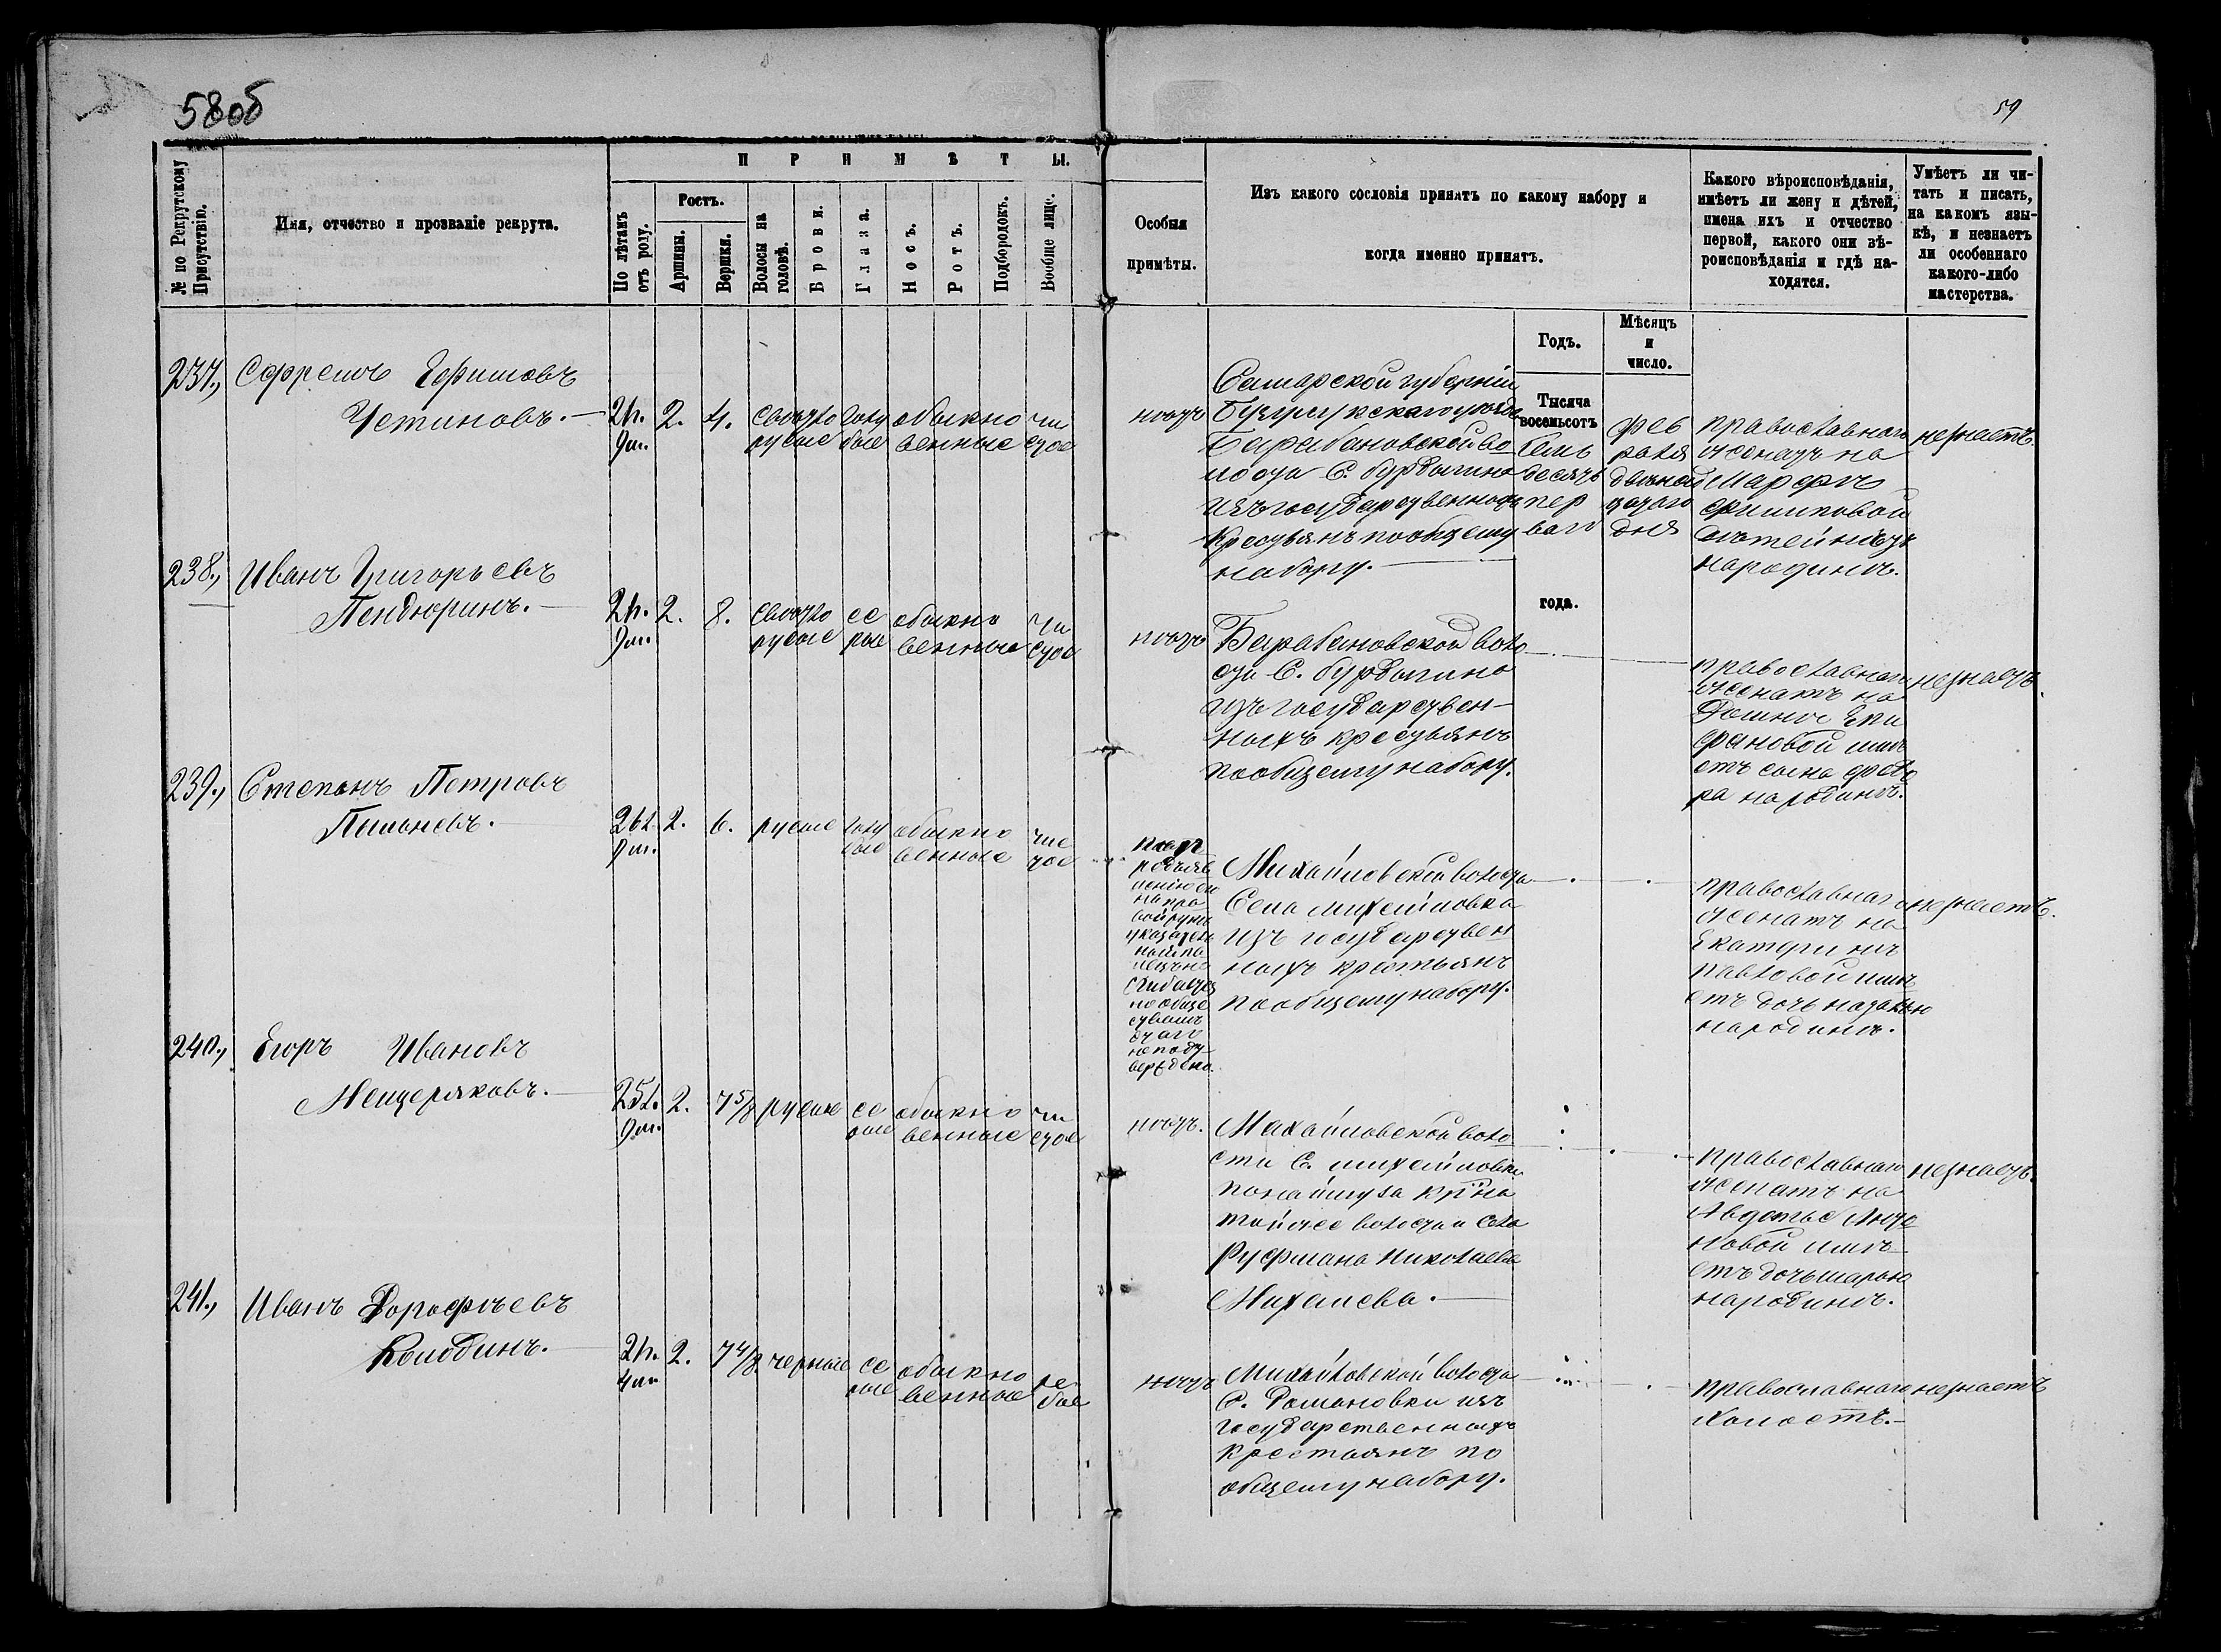 58об
59
№ по Рекрутскому Присутствію.
Имя, отчество и прозваніе рекрута.
ПРИМѢТЫ.
По лѣтамъ отъ роду.
Ростъ.
Аршины.
Вершки.
Волосы на головѣ.
Брови.
Глаза.
Носъ.
Ротъ.
Подбородокъ.
Вообще лице.
Особыя
примѣты.
Изъ какого сословія принятъ по какому набору и
когда именно принятъ.
Какого вѣроисповѣданія,
имѣетъ ли жену и дѣтей,
имена ихъ и отчество
первой, какого они вѣ-
роисповѣданія и гдѣ на-
ходятся.
Умѣетъ ли чи-
тать и писать,
на какомъ язы-
кѣ, и незнаетъ
ли особеннаго
какого-либо
мастерства.
Годъ.
Мѣсяцъ
и
число.
237., Ефремъ Ефимовъ
Устиновъ.
2. 4. светло русые
голу бые
обыкно венные
чи стое
нѣтъ
Самарской губерніи
Бузулукскаго уѣзда
Барабановской во
лости С.
изъ государственныхъ
крестьянъ по общему
набору.
Тысяча
восемьсотъ
семь
десятъ
пер
ваго
года.
фев
раля
двенад
цатаго
дня
православнаго
женатъ на
Марфѣ
Филиповой
дѣтей нѣтъ
народинѣ.
незнаетъ.
238., Иванъ Григорьевъ
Пендюринъ.
2. 8. светло русые
се рые
обыкно венные
чи стое
нѣтъ
Барабановской воло
сти С.
изъ государствен-
ныхъ крестьянъ
по общему набору.
православнаго
женатъ на
Домнѣ Епи
фановой имѣ
етъ сына Федо
ра народинѣ.
незнаетъ.
239., Степанъ Петровъ
2. 6. русые
голу бые
обыкно венные
чис тое
Михайловской волости
Села Михайловка
изъ государствен
ныхъ крестьянъ
по общему набору.
православнаго
женатъ на
Екатеринѣ
Павловой имѣ
етъ дочь Наталью
народинѣ.
незнаетъ.
240., Егоръ Ивановъ
Мещеряковъ.
25л. 2. 7 5/8 русые
се рые
обыкно венные
чи стое
нѣтъ.
Михайловской воло
сти С. Михайловки
по найму за кр̈на
той же волости и села
Николаева
Михеева.
православнаго
женатъ на
Авдотье
новой имѣ
етъ дочь Марью
народинѣ.
незнаетъ.
241., Иванъ Дорофѣевъ
Колодинъ.
2. 7 4/8 черные
се рые
обыкно венные
ре бое
нѣтъ
Михайловской волости
С. Романовки изъ
государственныхъ
крестьянъ по
общему набору.
православнаго
холостъ.
незнаетъ